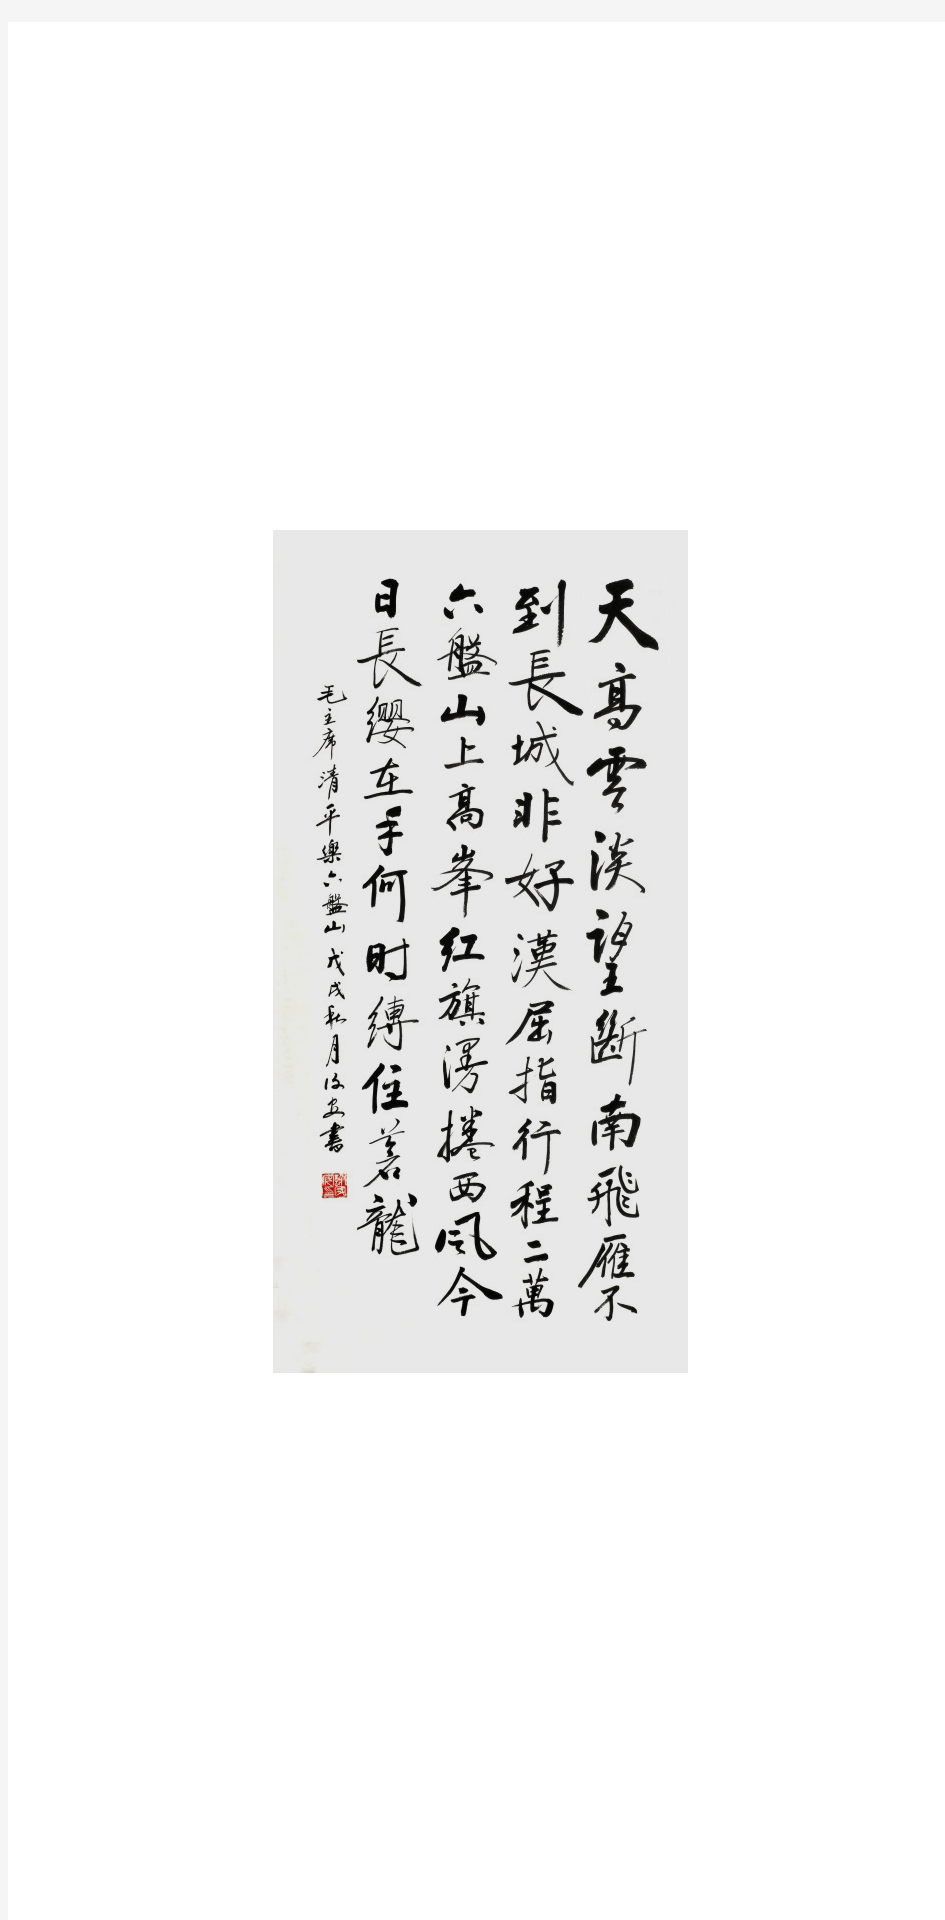 天高雲淡望斷南飛雁不
到長城非好漢屈指行程二萬
六盤山上高峯红旗漫捲西风今
日長缨在手何时缚住蒼龍
毛主席清平樂六盤山戊戌秋月書